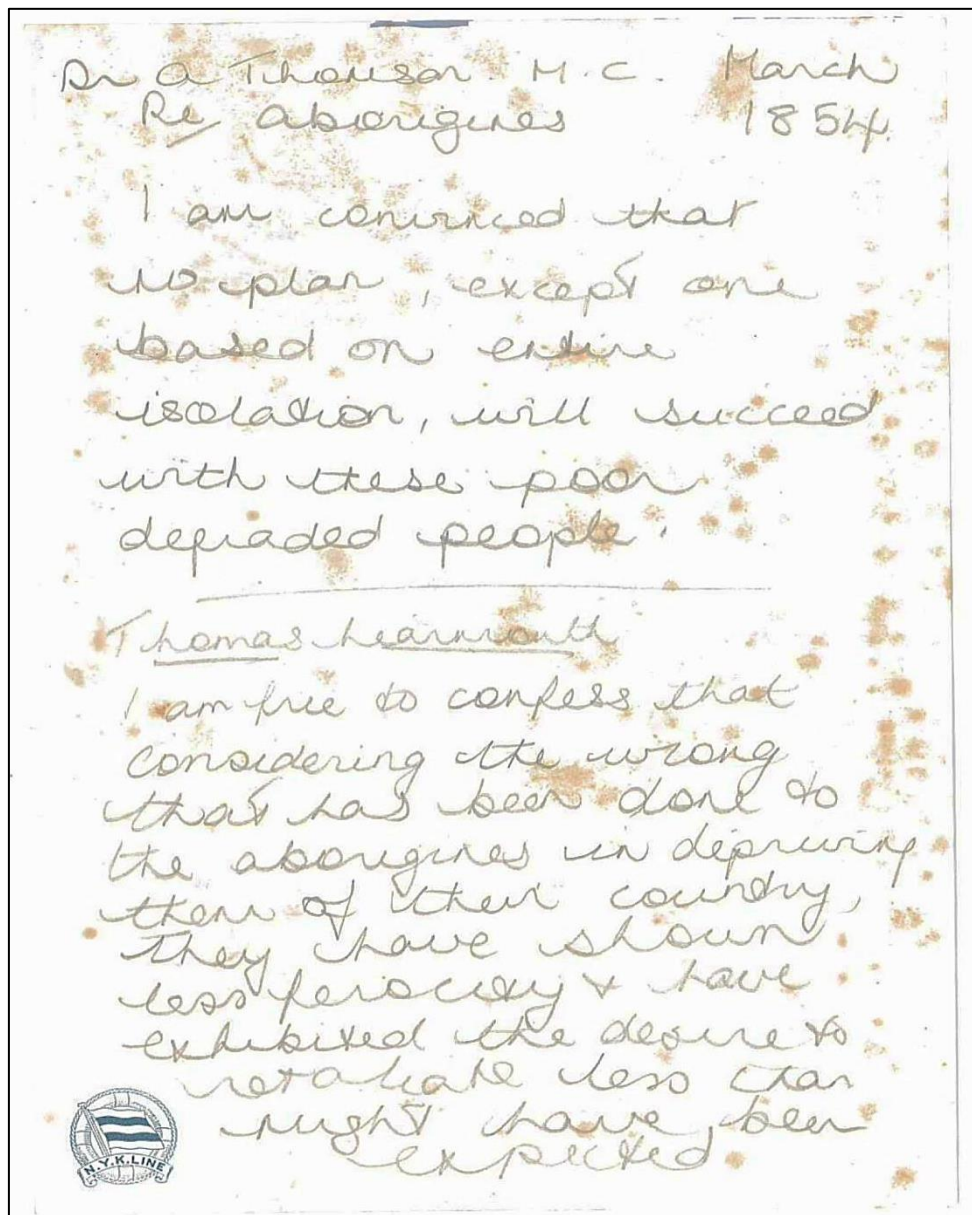 Dr A Thomson M.C. March
Re Aborigines 1854.
I am convinced that
no plan, except one
based on entire
isolation, will succeed
with these poor
degraded people.
Thomas Learmonth
I am free to confess that
considering the wrong
that has been done to
the aborigines in depriving
them of their country,
they have shown
less ferocity & have
exhibited the desire to
retaliate less than
might have been
expected.
N.Y.K.LINE